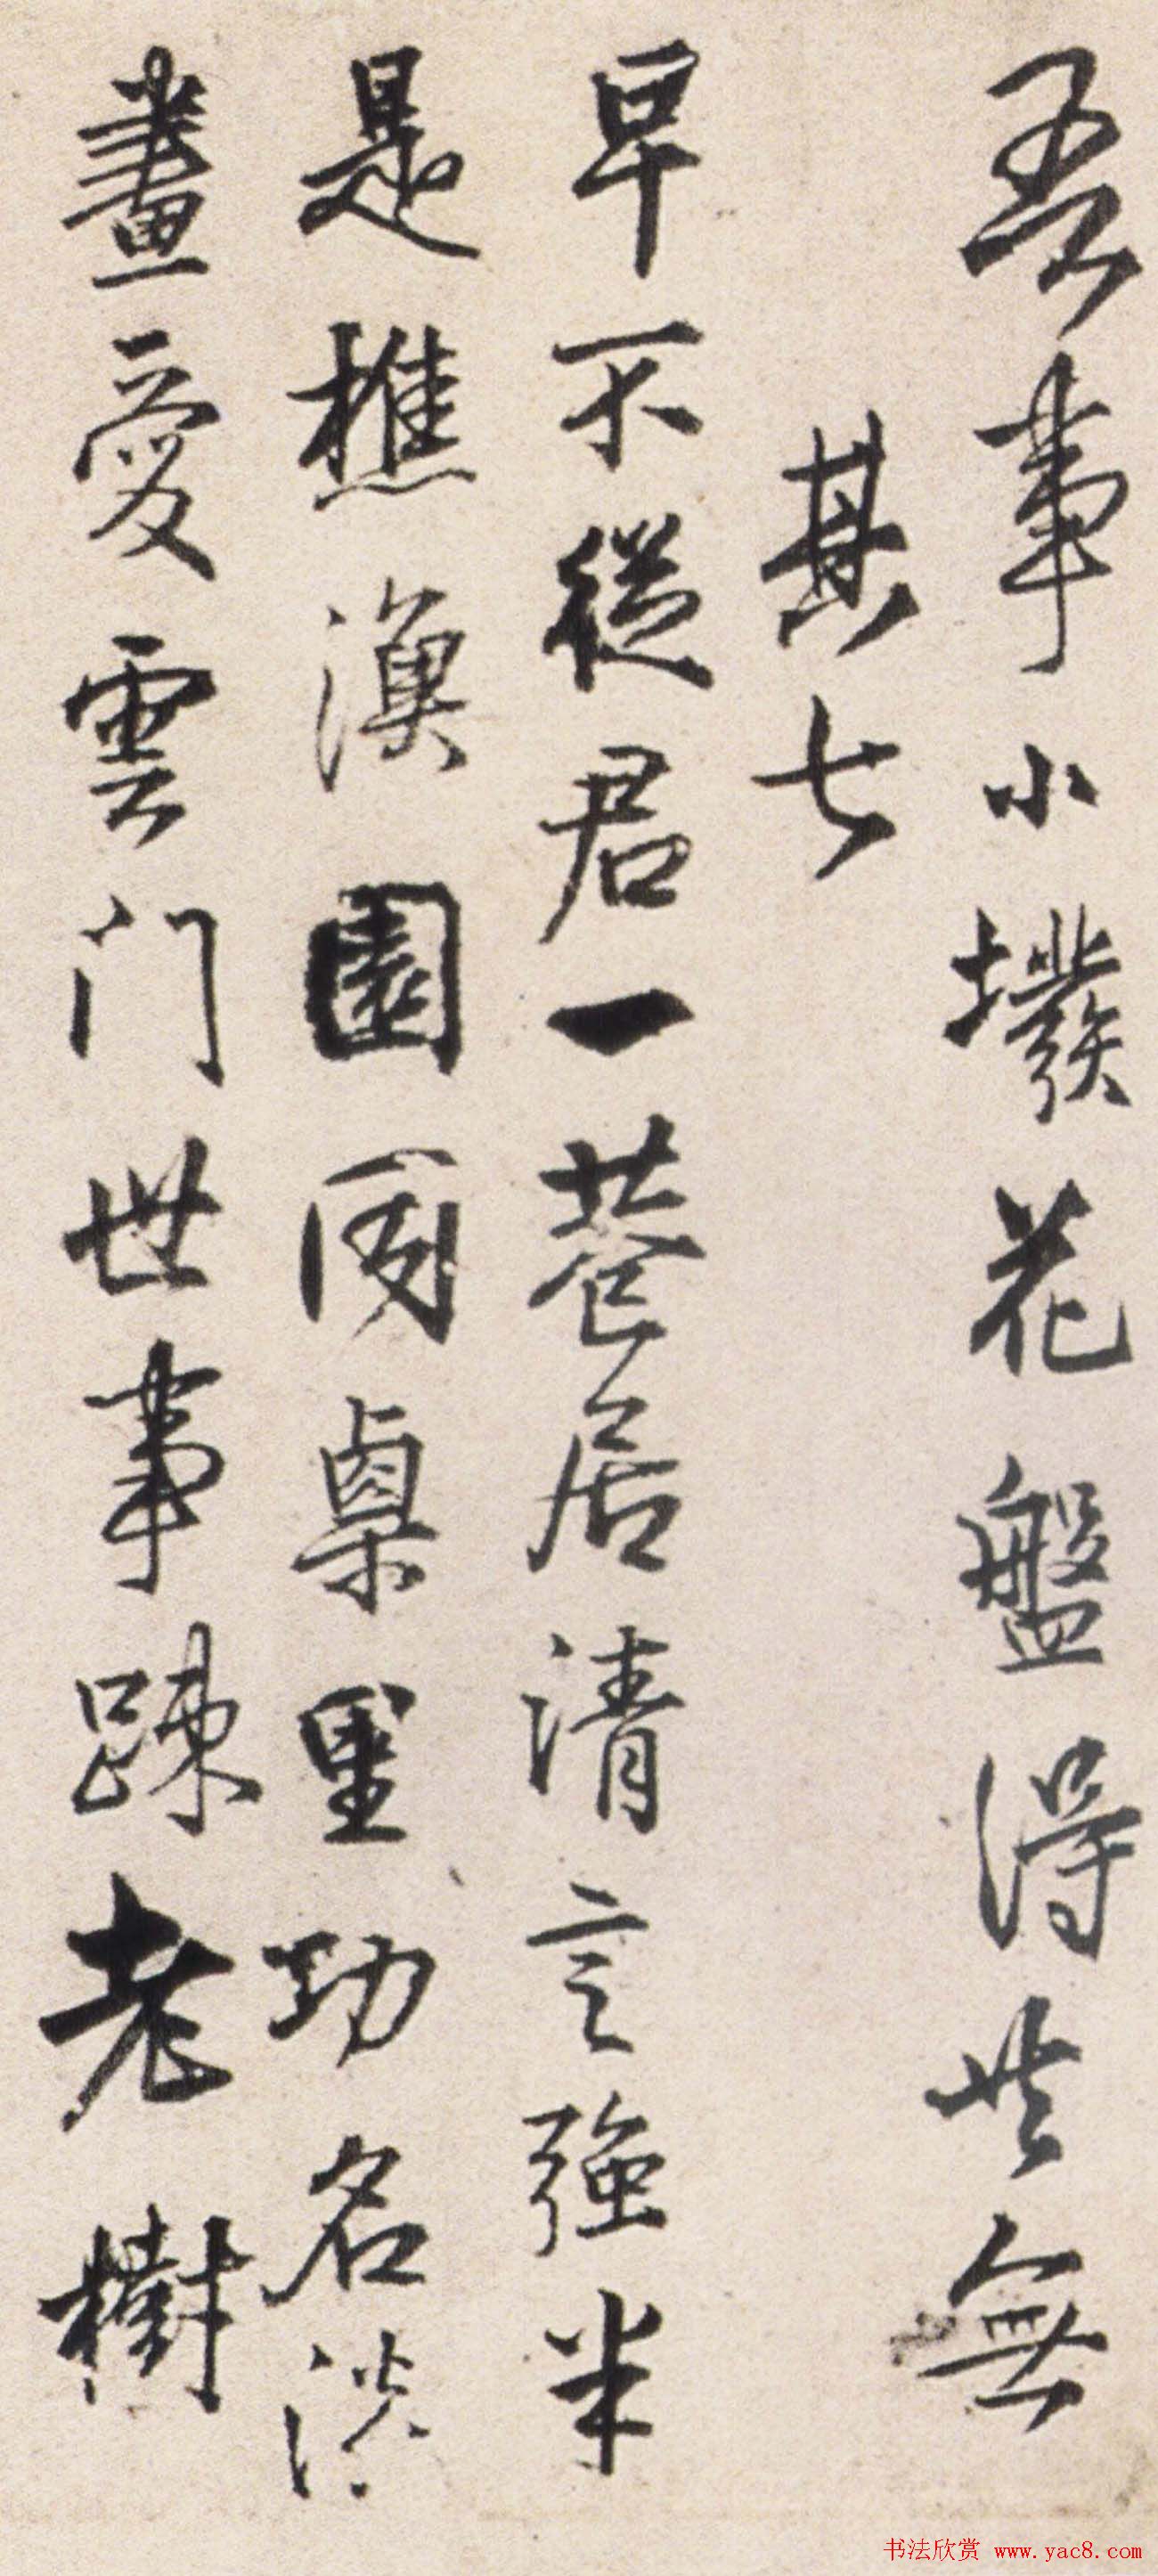 吾事小墢花盤得此無
其七
早不從君一巷居清言強半
是樵漁園図稟里功名淡
畫愛雲門世事踈老樹
书法欣赏 www.yac8.com